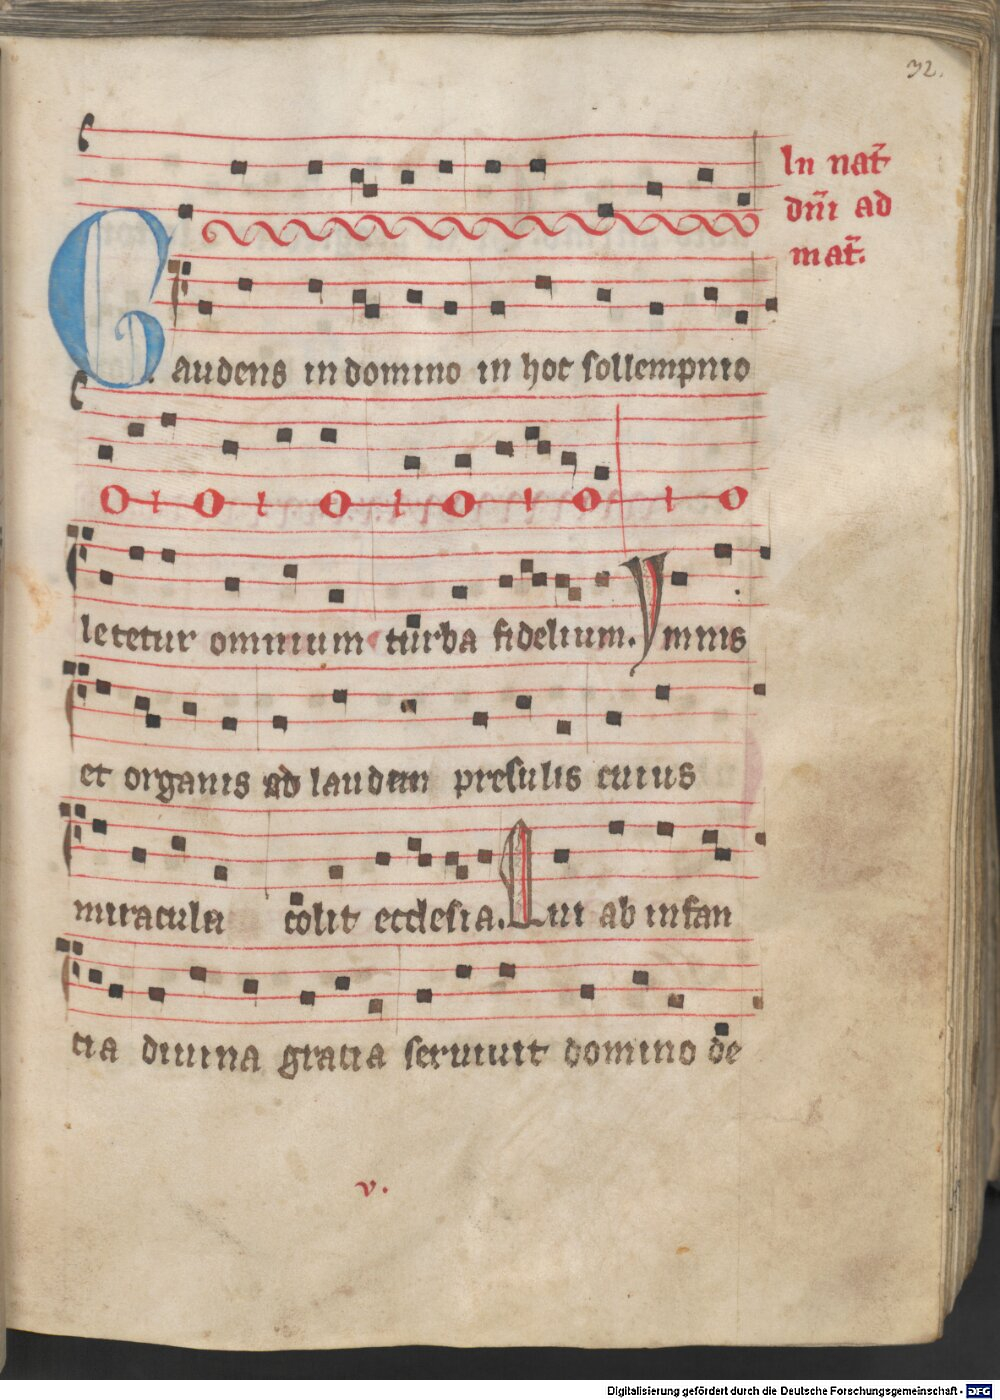 32.
In nat̄
dn̄i ad
mat̄.
Gaudens in domino in hoc sollempnio
letetur omnium turba fidelium. Ymnis
et organis ad laudem presulis cuius
miracula colit ecclesia. Qui ab infan
cia diuina gracia seruiuit domino de
v.
Digitalisierung gefördert durch die Deutsche Forschungsgemeinschaft - DFG